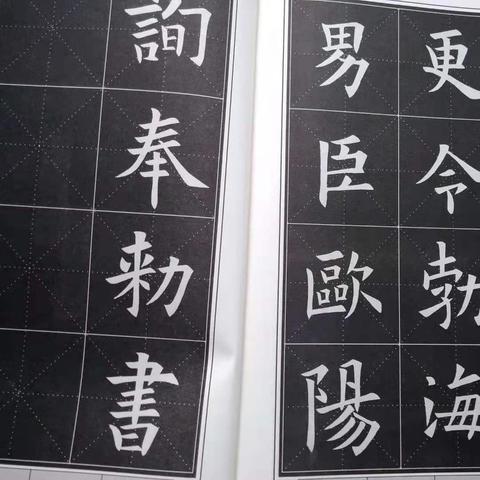 更令勃海
男臣歐陽
詢奉勅書